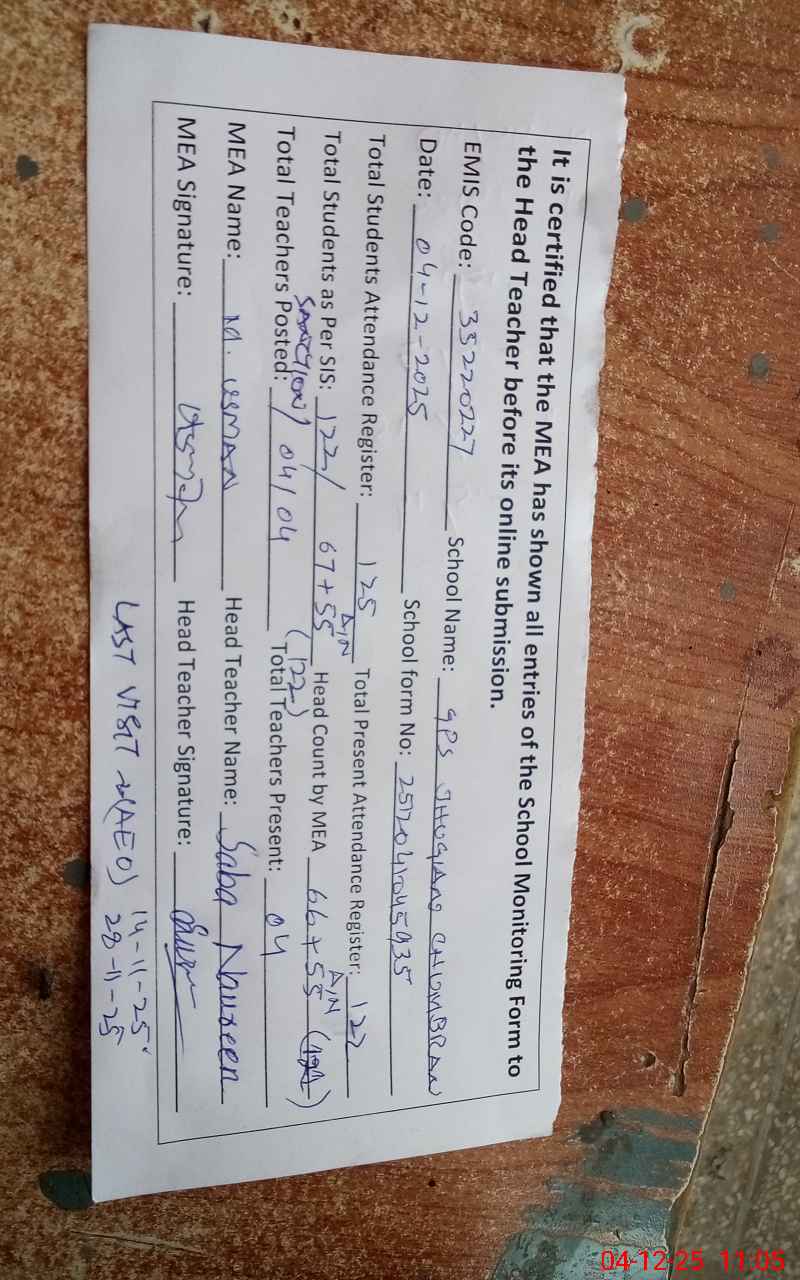 It is certified that the MEA has shown all entries of the School Monitoring Form to
the Head Teacher before its online submission.
EMIS Code: 33220227 School Name: GPS JHUGIANO CHOMBRAN
Date: 04-12-2025 School form No: 2512041045935
Total Students Attendance Register: 125 Total Present Attendance Register: 122
Total Students as Per SIS: 122/ 67+55 A/N (122) Head Count by MEA 66+55 A/N (121)
Total Teachers Posted: SANCTION/ 04/04 Total Teachers Present: 04
MEA Name: M. USMAN Head Teacher Name: Saba Noureen
MEA Signature: Usman Head Teacher Signature:
LAST VISIT (AEO) 14-11-25
28-11-25
04-12-25 11:05